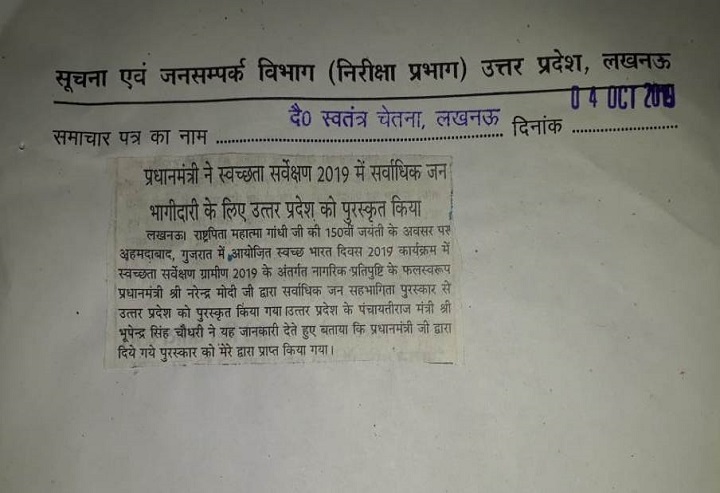 सूचना एवं जनसम्पर्क विभाग (निरीक्षा प्रभाग) उत्तर प्रदेश, लखनऊ
0 4 OCT 2019
समाचार पत्र का नाम दै0 स्वतंत्र चेतना, लखनऊ दिनांक
प्रधानमंत्री ने स्वच्छता सर्वेक्षण 2019 में सर्वाधिक जन
भागीदारी के लिए उत्तर प्रदेश को पुरस्कृत किया
लखनऊ। राष्ट्रपिता महात्मा गांधी जी की 150वीं जयंती के अवसर पर
अहमदाबाद, गुजरात में आयोजित स्वच्छ भारत दिवस 2019 कार्यक्रम में
स्वच्छता सर्वेक्षण ग्रामीण 2019 के अंतर्गत नागरिक प्रतिपुष्टि के फलस्वरूप
प्रधानमंत्री श्री नरेन्द्र मोदी जी द्वारा सर्वाधिक जन सहभागिता पुरस्कार से
उत्तर प्रदेश को पुरस्कृत किया गया।उत्तर प्रदेश के पंचायतीराज मंत्री श्री
भूपेन्द्र सिंह चौधरी ने यह जानकारी देते हुए बताया कि प्रधानमंत्री जी द्वारा
दिये गये पुरस्कार को मेरे द्वारा प्राप्त किया गया।